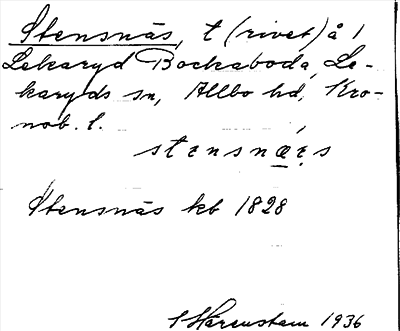 Stensnäs, t (rivet) å 1
Lekaryd Bockaboda, Le-
karyds sn, Allbo hd, Kro-
nob. l.
stensnǽs
Stensnäs kb 1828
S Härenstam 1936